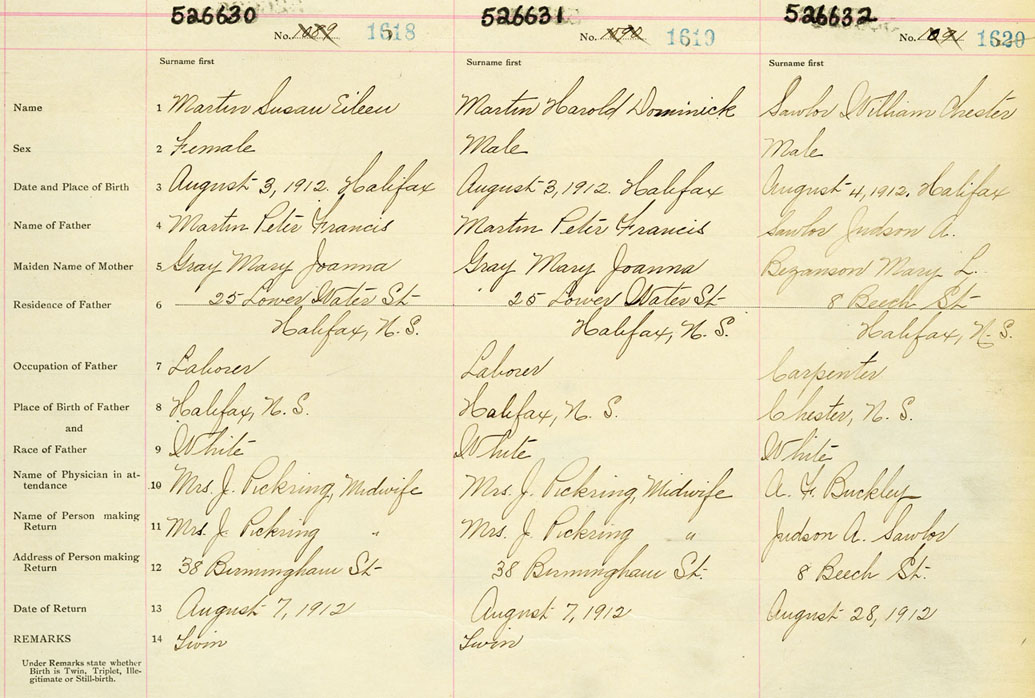 526630 526631 526632
No. 1089 1618 No. 1090 1619 No. 1091 1620
Surname first Surname first Surname first
Name 1 Martin Susan Eileen Martin Harold Dominick Sawlor William Chester
Sex 2 Female Male Male
Date and Place of Birth 3 August 3, 1912. Halifax August 3, 1912. Halifax August 4, 1912. Halifax
Name of Father 4 Martin Peter Francis Martin Peter Francis Sawlor Judson A.
Maiden Name of Mother 5 Gray Mary Joanna Gray Mary Joanna Bezanson Mary L.
Residence of Father 6 25 Lower Water St 25 Lower Water St 8 Beech St
Halifax, N.S. Halifax, N.S. Halifax, N.S.
Occupation of Father 7 Laborer Laborer Carpenter
Place of Birth of Father 8 Halifax, N.S. Halifax, N.S. Chester, N.S.
and
Race of Father 9 White White White
Name of Physician in at-
tendance 10 Mrs. J. Pickring, Midwife Mrs. J. Pickring, Midwife A. F. Buckley
Name of Person making
Return 11 Mrs. J. Pickring " Mrs. J. Pickring " Judson A. Sawlor
Address of Person making
Return 12 38 Birmingham St 38 Birmingham St. 8 Beech St.
Date of Return 13 August 7, 1912 August 7, 1912 August 28, 1912
REMARKS 14 Twin Twin
Under Remarks state whether
Birth is Twin, Triplet, Ille-
gitimate or Still-birth.